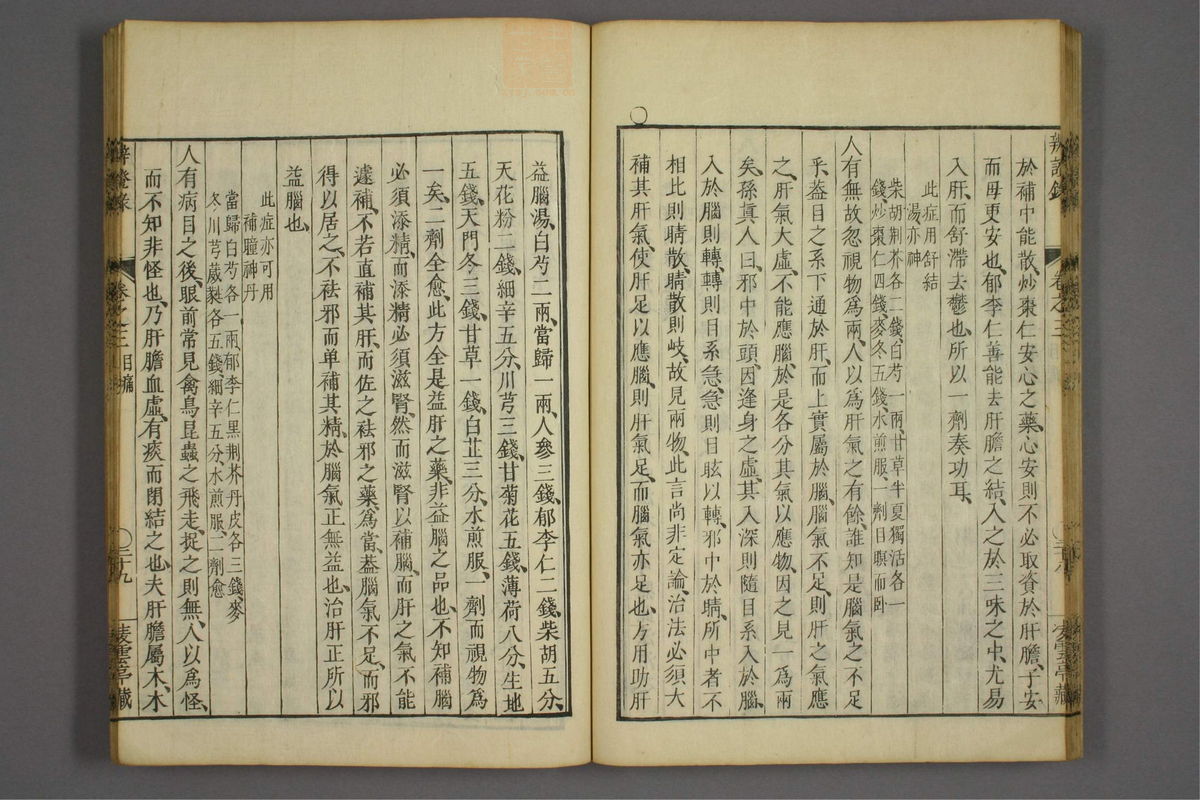 辨證錄 卷之三
於補中能散炒棗仁安心之藥、心安則不必取資於肝膽、子安
而母更安也、郁李仁善能去肝膽之結、入之於三味之中、尤易
入肝、而舒滯去鬱也、所以一劑奏功耳、
此症用舒結
湯亦神
柴胡荆芥各二錢、白芍一兩、甘草半夏獨活各一
錢、炒棗仁四錢、麥冬五錢、水煎服、一劑目瞑而卧
人有無故忽視物為兩、人以為肝氣之有餘、誰知是腦氣之不足
乎、葢目之系下通於肝、而上實屬於腦、腦氣不足、則肝之氣應
之、肝氣大虛、不能應腦、於是各分其氣以應物、因之見一為兩
矣、孫真人曰、邪中於頭、因逢身之虛、其入深、則隨目系入於腦、
入於腦則轉、轉則目系急、急則目眩以轉、邪中於睛、所中者不
相比則睛散、睛散則岐、故見兩物、此言尚非定論、治法必須大
補其肝氣、使肝足以應腦、則肝氣足、而腦氣亦足也、方用助肝
凌雲亭藏
益腦湯、白芍二兩、當歸一兩、人參三錢、郁李仁二錢、柴胡五分、
天花粉二錢、細辛五分、川芎三錢、甘菊花五錢、薄荷八分、生地
五錢、天門冬三錢、甘草一錢、白芷三分、水煎服、一劑而視物為
一矣、二劑全愈、此方全是益肝之藥、非益腦之品也、不知補腦
必須添精、而添精必須滋腎、然而滋腎以補腦、而肝之氣不能
遽補、不若直補其肝、而佐之祛邪之藥、為當、葢腦氣不足、而邪
得以居之、不祛邪而单補其精、於腦氣正無益也、治肝正所以
益腦也、
此症亦可用
補瞳神丹
當歸白芍各一兩、郁李仁黑荆芥丹皮各三錢、麥
冬川芎葳蕤各五錢、細辛五分、水煎服、二劑愈
人有病目之後、眼前常見禽鳥昆蟲之飛走、捉之則無、人以為怪、
而不知非怪也、乃肝膽血虛、有痰而閉結之也、夫肝膽屬木、木
辨證錄 卷之三 目痛 三十九 凌雲亭藏